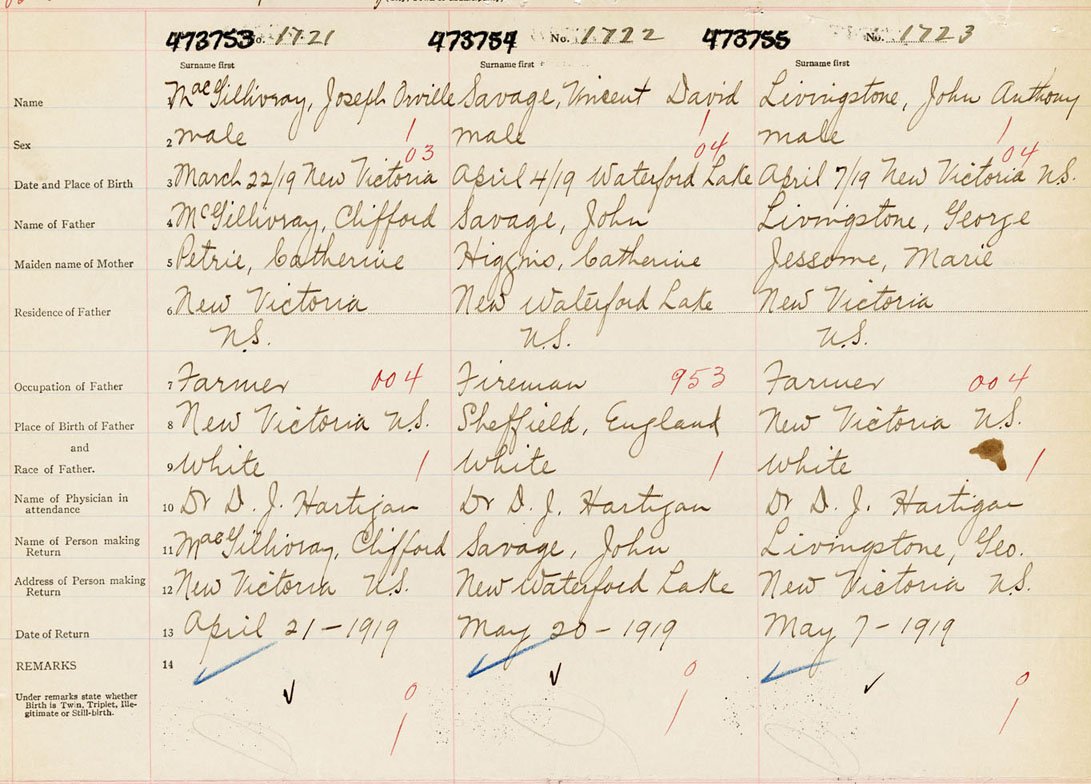 473753 No. 1721 473754 No. 1722 473755 No. 1723
Surname first Surname first Surname first
Name 1 MacGillivray, Joseph Orville Savage, Vincent David Livingstone, John Anthony
Sex 2 male 1 male 1 male 1
03 04 04
Date and Place of Birth 3 March 22/19 New Victoria April 4/19 Waterford Lake April 7/19 New Victoria N.S.
Name of Father 4 McGillivray, Clifford Savage, John Livingstone, George
Maiden name of Mother 5 Petrie, Catherine Higgins, Catherine Jessome, Marie
Residence of Father 6 New Victoria New Waterford Lake New Victoria
N.S. N.S. N.S.
Occupation of Father 7 Farmer 004 Fireman 953 Farmer 004
Place of Birth of Father 8 New Victoria N.S. Sheffield, England New Victoria N.S.
and
Race of Father. 9 White 1 White 1 White 1
Name of Physician in
attendance 10 Dr D. J. Hartigan Dr D. J. Hartigan Dr D. J. Hartigan
Name of Person making
Return 11 MacGillivray, Clifford Savage, John Livingstone, Geo.
Address of Person making
Return 12 New Victoria N.S. New Waterford Lake New Victoria N.S.
Date of Return 13 April 21-1919 May 20-1919 May 7-1919
REMARKS 14
Under remarks state whether
Birth is Twin, Triplet, Ille-
gitimate or Still-birth.
0 0 0
1 1 1